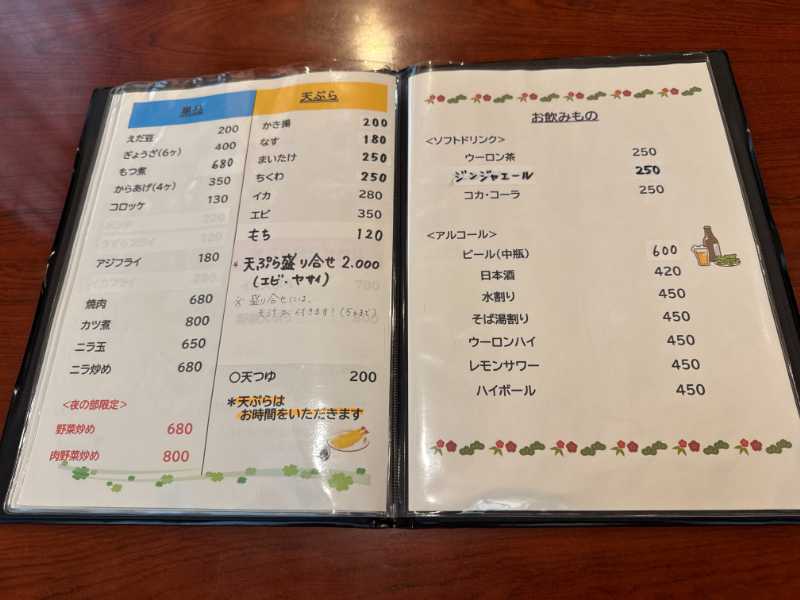 単品
えだ豆 200
ぎょうざ(6ヶ) 400
もつ煮 680
からあげ(4ヶ) 350
コロッケ 130
アジフライ 180
焼肉 680
カツ煮 800
ニラ玉 650
ニラ炒め 680
<夜の部限定>
野菜炒め 680
肉野菜炒め 800
天ぷら
かき揚 200
なす 180
まいたけ 250
ちくわ 250
イカ 280
エビ 350
もち 120
* 天ぷら盛り合せ 2.000
(エビ・ヤサイ)
※盛り合せには、
○天つゆ 200
*天ぷらは
お時間をいただきます
お飲みもの
<ソフトドリンク>
ウーロン茶 250
ジンジャエール 250
コカ・コーラ 250
<アルコール>
ビール(中瓶) 600
日本酒 420
水割り 450
そば湯割り 450
ウーロンハイ 450
レモンサワー 450
ハイボール 450